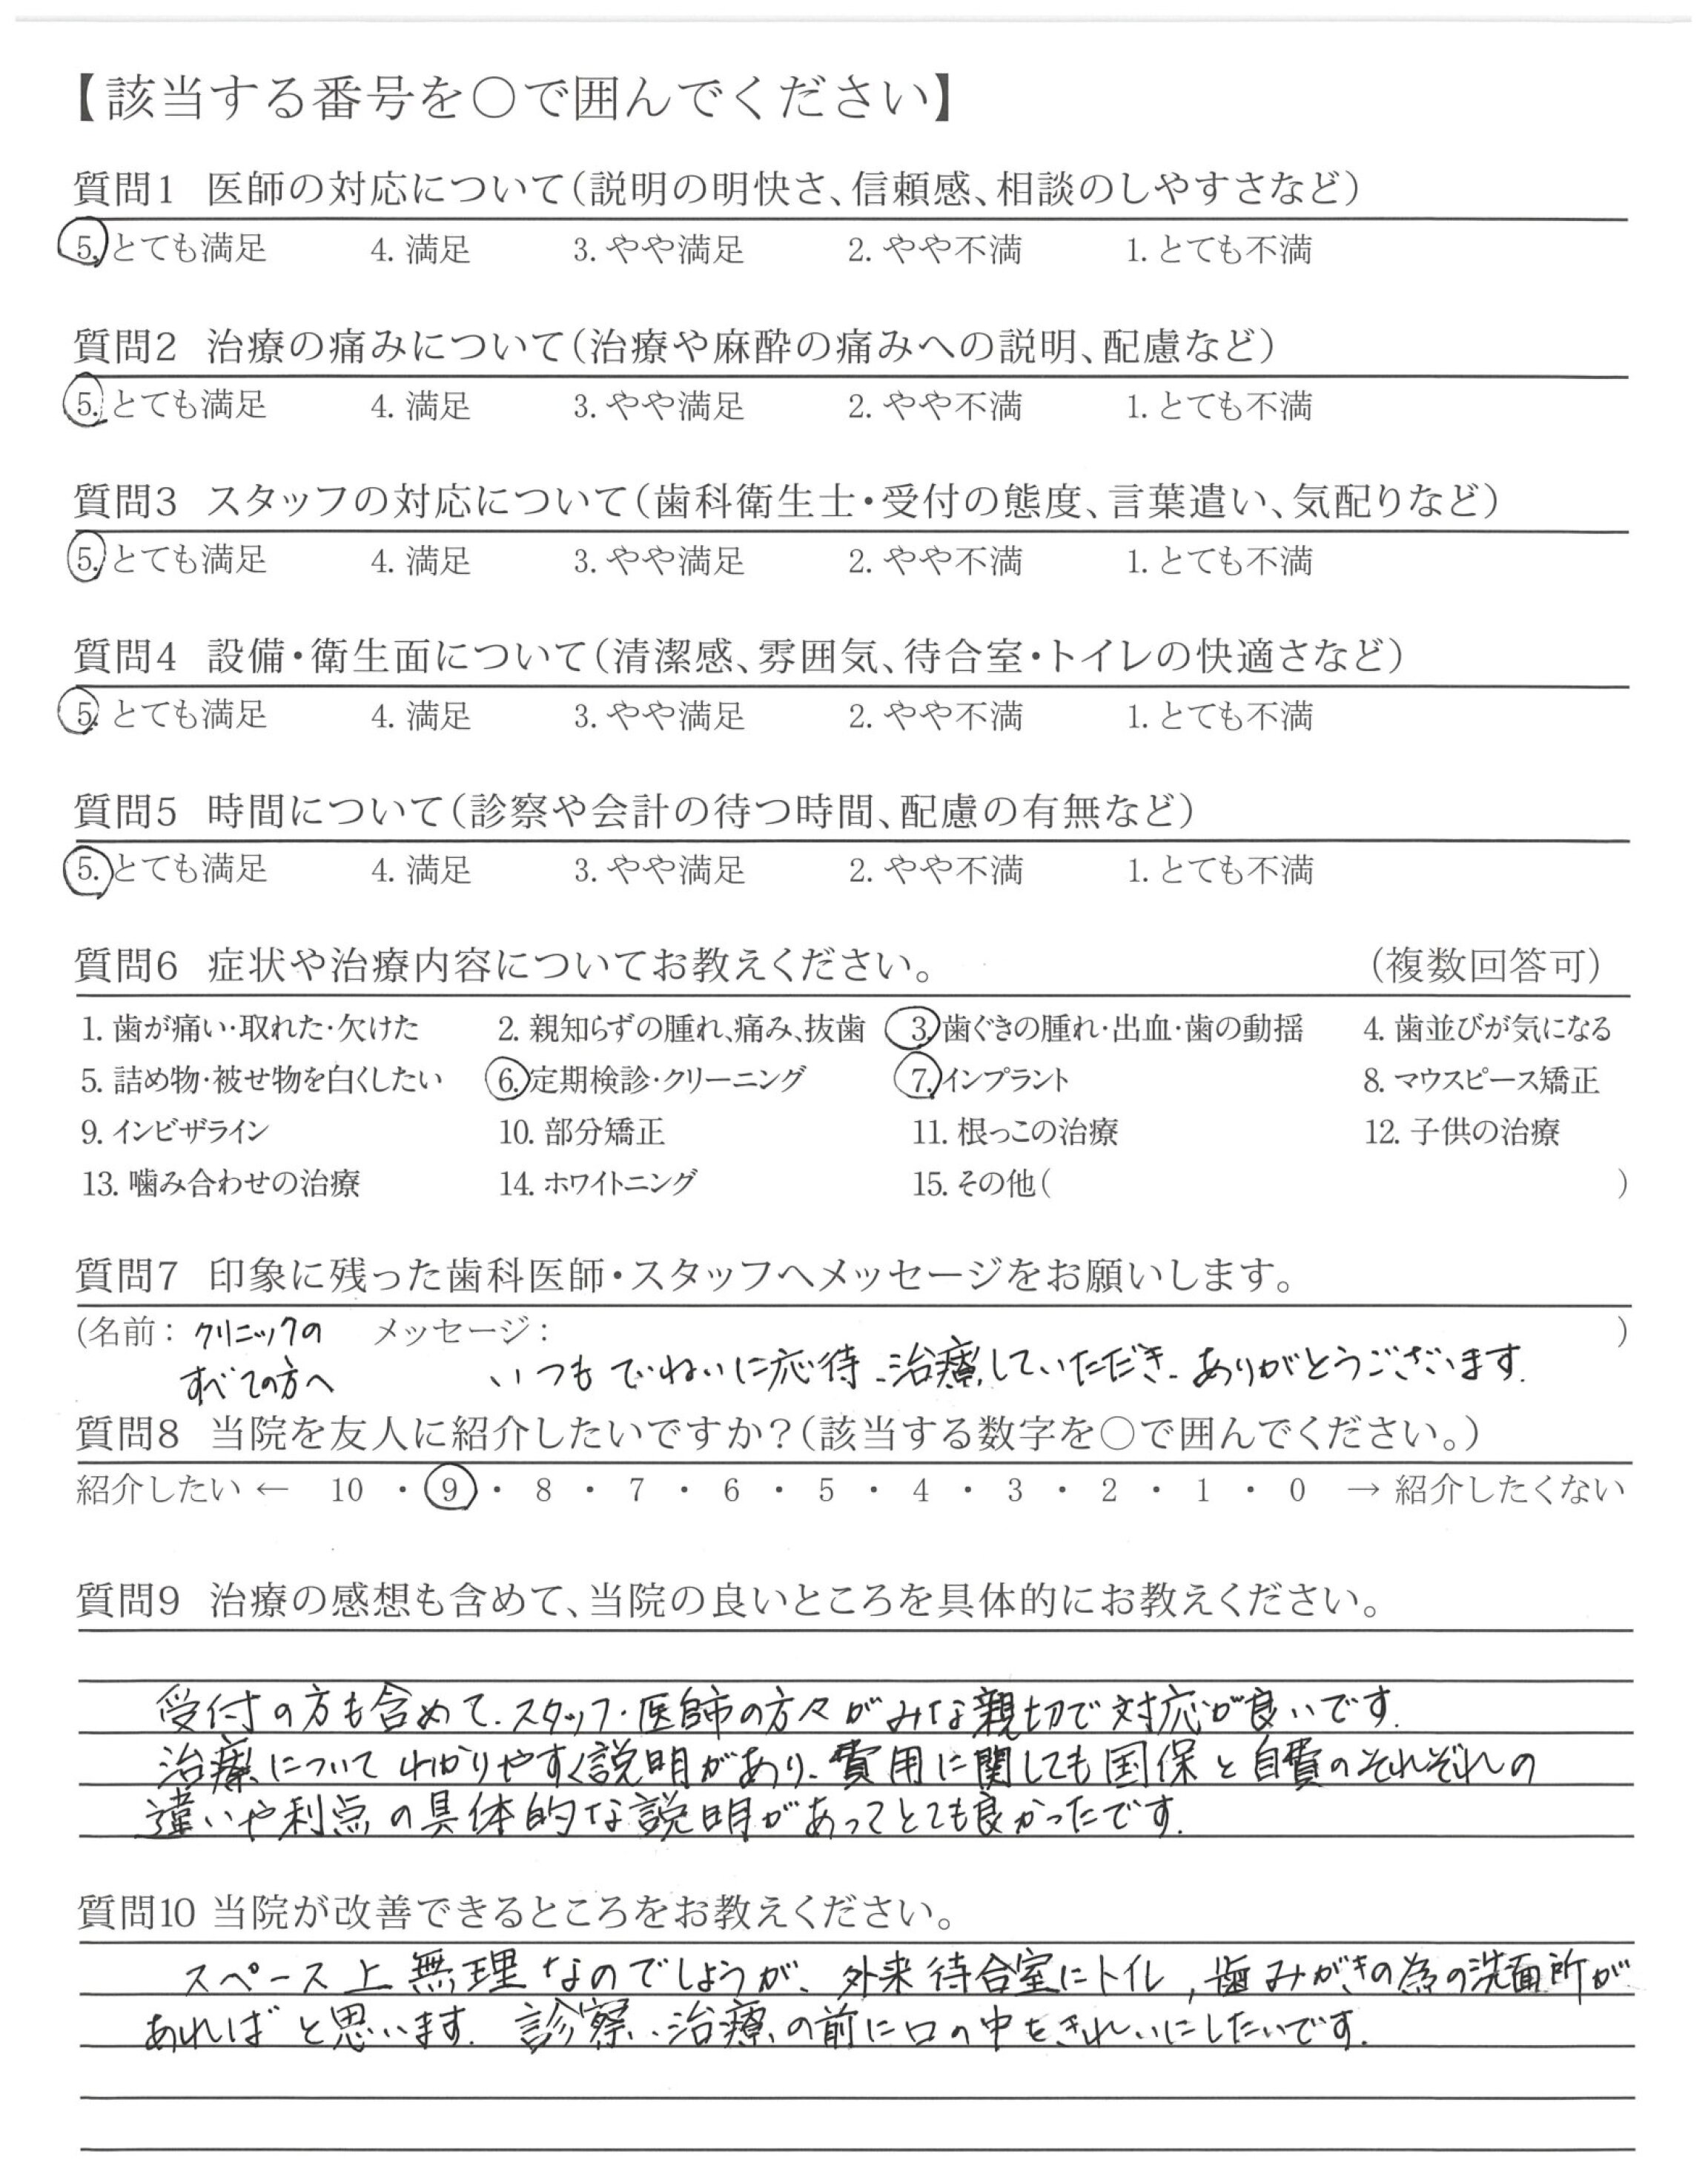 【該当する番号を○で囲んでください】
質問1 医師の対応について(説明の明快さ、信頼感、相談のしやすさなど)
5. とても満足 4. 満足 3. やや満足 2. やや不満 1. とても不満
質問2 治療の痛みについて(治療や麻酔の痛みへの説明、配慮など)
5. とても満足 4. 満足 3. やや満足 2. やや不満 1. とても不満
質問3 スタッフの対応について(歯科衛生士・受付の態度、言葉遣い、気配りなど)
5. とても満足 4. 満足 3. やや満足 2. やや不満 1. とても不満
質問4 設備・衛生面について(清潔感、雰囲気、待合室・トイレの快適さなど)
5. とても満足 4. 満足 3. やや満足 2. やや不満 1. とても不満
質問5 時間について(診察や会計の待つ時間、配慮の有無など)
5. とても満足 4. 満足 3. やや満足 2. やや不満 1. とても不満
質問6 症状や治療内容についてお教えください。 (複数回答可)
1. 歯が痛い・取れた・欠けた 2. 親知らずの腫れ、痛み、抜歯 3. 歯ぐきの腫れ・出血・歯の動揺 4. 歯並びが気になる
5. 詰め物・被せ物を白くしたい 6. 定期検診・クリーニング 7. インプラント 8. マウスピース矯正
9. インビザライン 10. 部分矯正 11. 根っこの治療 12. 子供の治療
13. 噛み合わせの治療 14. ホワイトニング 15. その他( )
質問7 印象に残った歯科医師・スタッフへメッセージをお願いします。
(名前: クリニックの メッセージ: )
すべての方へ いつもていねいに応待、治療していただき、ありがとうございます.
質問8 当院を友人に紹介したいですか?(該当する数字を○で囲んでください。)
紹介したい ← 10 ・ 9 ・ 8 ・ 7 ・ 6 ・ 5 ・ 4 ・ 3 ・ 2 ・ 1 ・ 0 → 紹介したくない
質問9 治療の感想も含めて、当院の良いところを具体的にお教えください。
受付の方も含めて、スタッフ・医師の方々がみな親切で対応が良いです.
治療についてわかりやすく説明があり、費用に関しても国保と自費のそれぞれの
違いや利点の具体的な説明があってとても良かったです.
質問10 当院が改善できるところをお教えください。
スペース上無理なのでしょうが、外来待合室にトイレ,歯みがきの為の洗面所が
あればと思います. 診察、治療の前に口の中をきれいにしたいです.